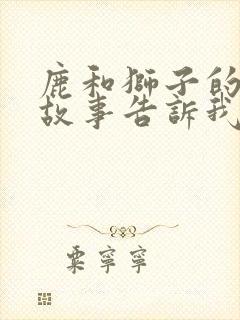 鹿和獅子的
故事告訴我
粟寧寧